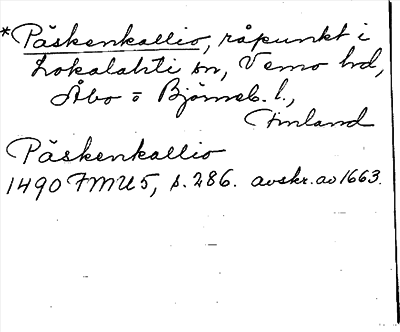 *Päskenkallio, råpunkt i
Lokalahti sn, Vemo hd,
Åbo o Björneb. l.,
Finland
Päskenkallio
1490 FMU 5, s. 286. avskr. av 1663.